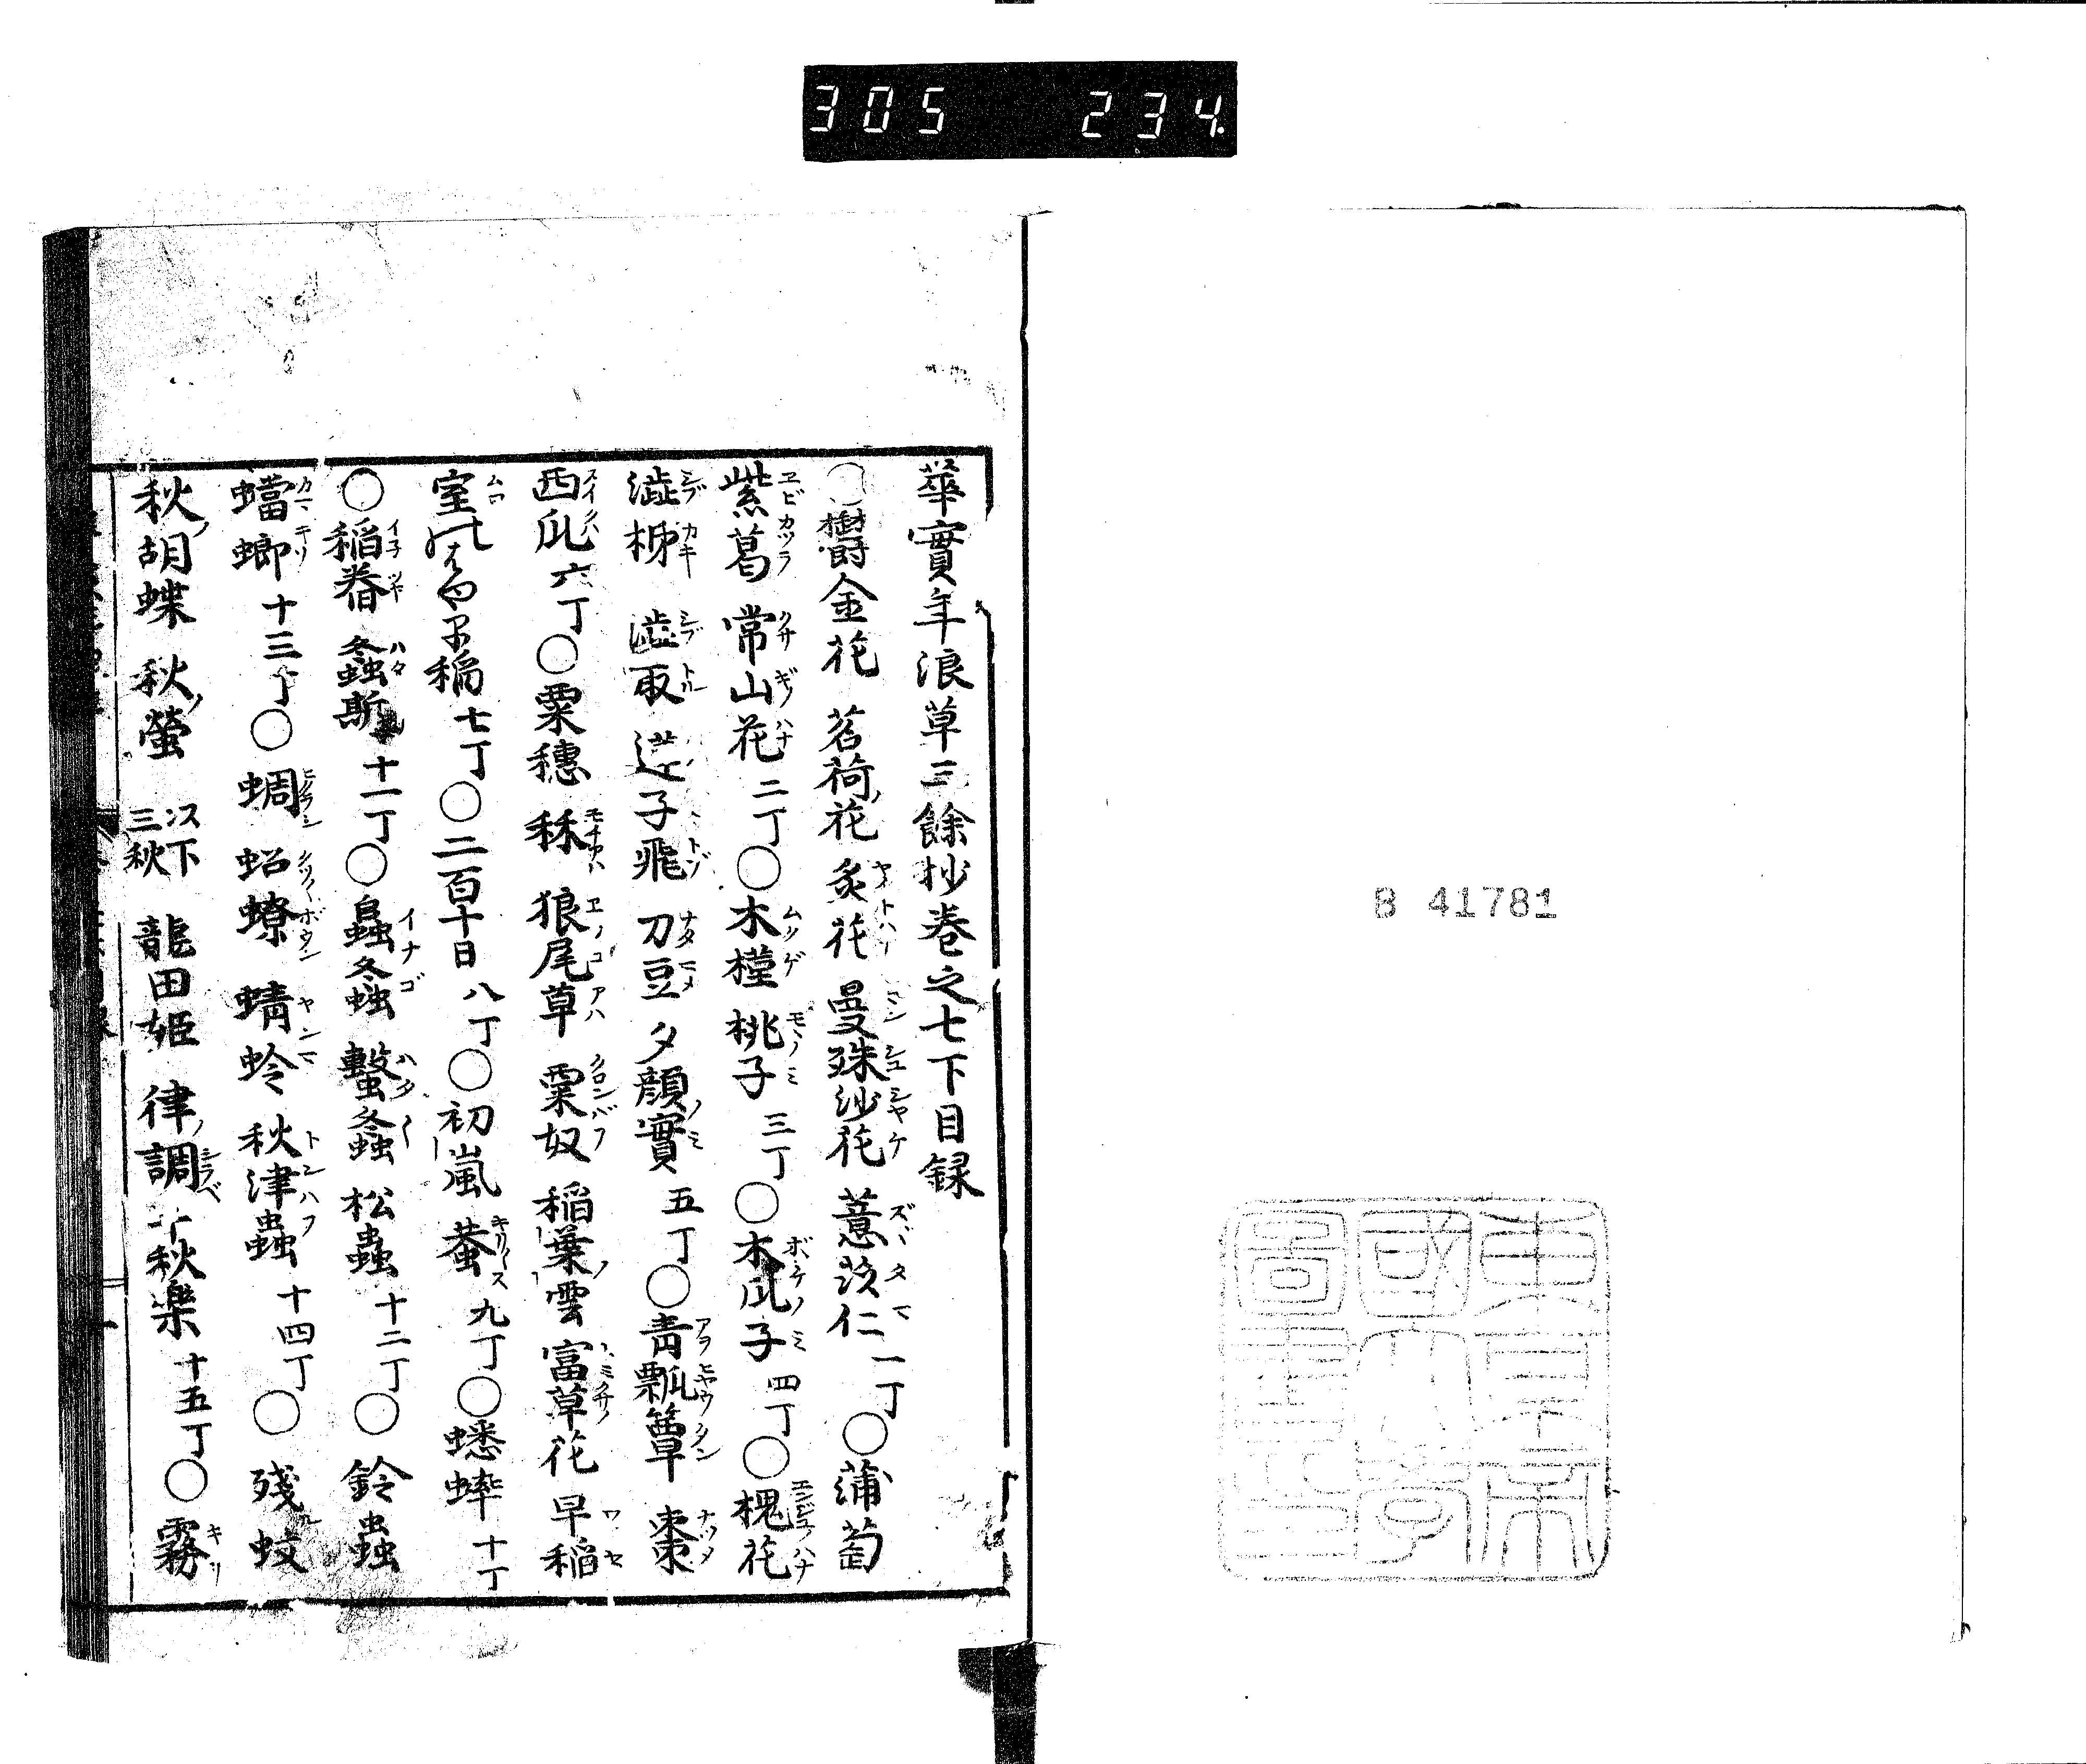 305 234
B 41781
東京帝
國大學
圖書印
華實年浪草三餘抄巻之七下目録
〇欝金花 茗荷ノ花 炙花 曼珠沙花 薏苡仁 一丁〇蒲萄
紫葛 常山花 二丁〇木槿 桃子 三丁〇木瓜子 四丁〇槐花
澁柹 澁取 子飛 刀豆 夕顔ノ實 五丁〇青瓢簟 棗
西瓜 六丁〇粟穗 秫 狼尾草 粟奴 稲葉ノ雲 富草花 早稲
室 稲 七丁〇二百十日 八丁〇初嵐 蛬 九丁〇蟋蟀 十丁
〇稲舂 螽斯 十一丁〇螽 松蟲 十二丁〇鈴蟲
蟷螂 十三丁〇蜩 蛁蟟 蜻蛉 秋津蟲 十四丁〇殘ル蚊
秋ノ胡蝶 秋ノ螢 以下三秋 龍田姫 律ノ調 千秋樂 十五丁〇霧